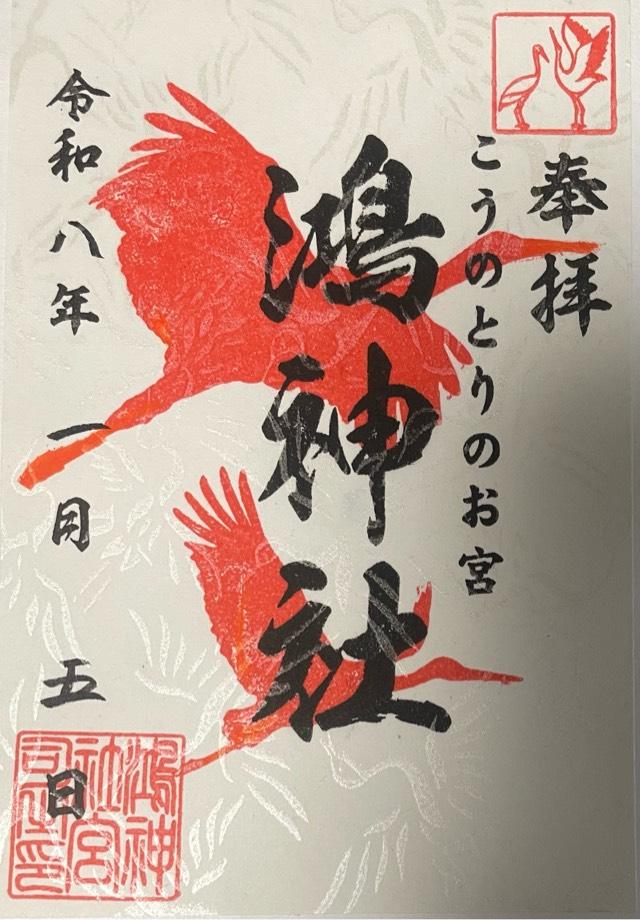 奉拝
こうのとりのお宮
鴻神社
令和八年一月五日
鴻神
社宮
司之印